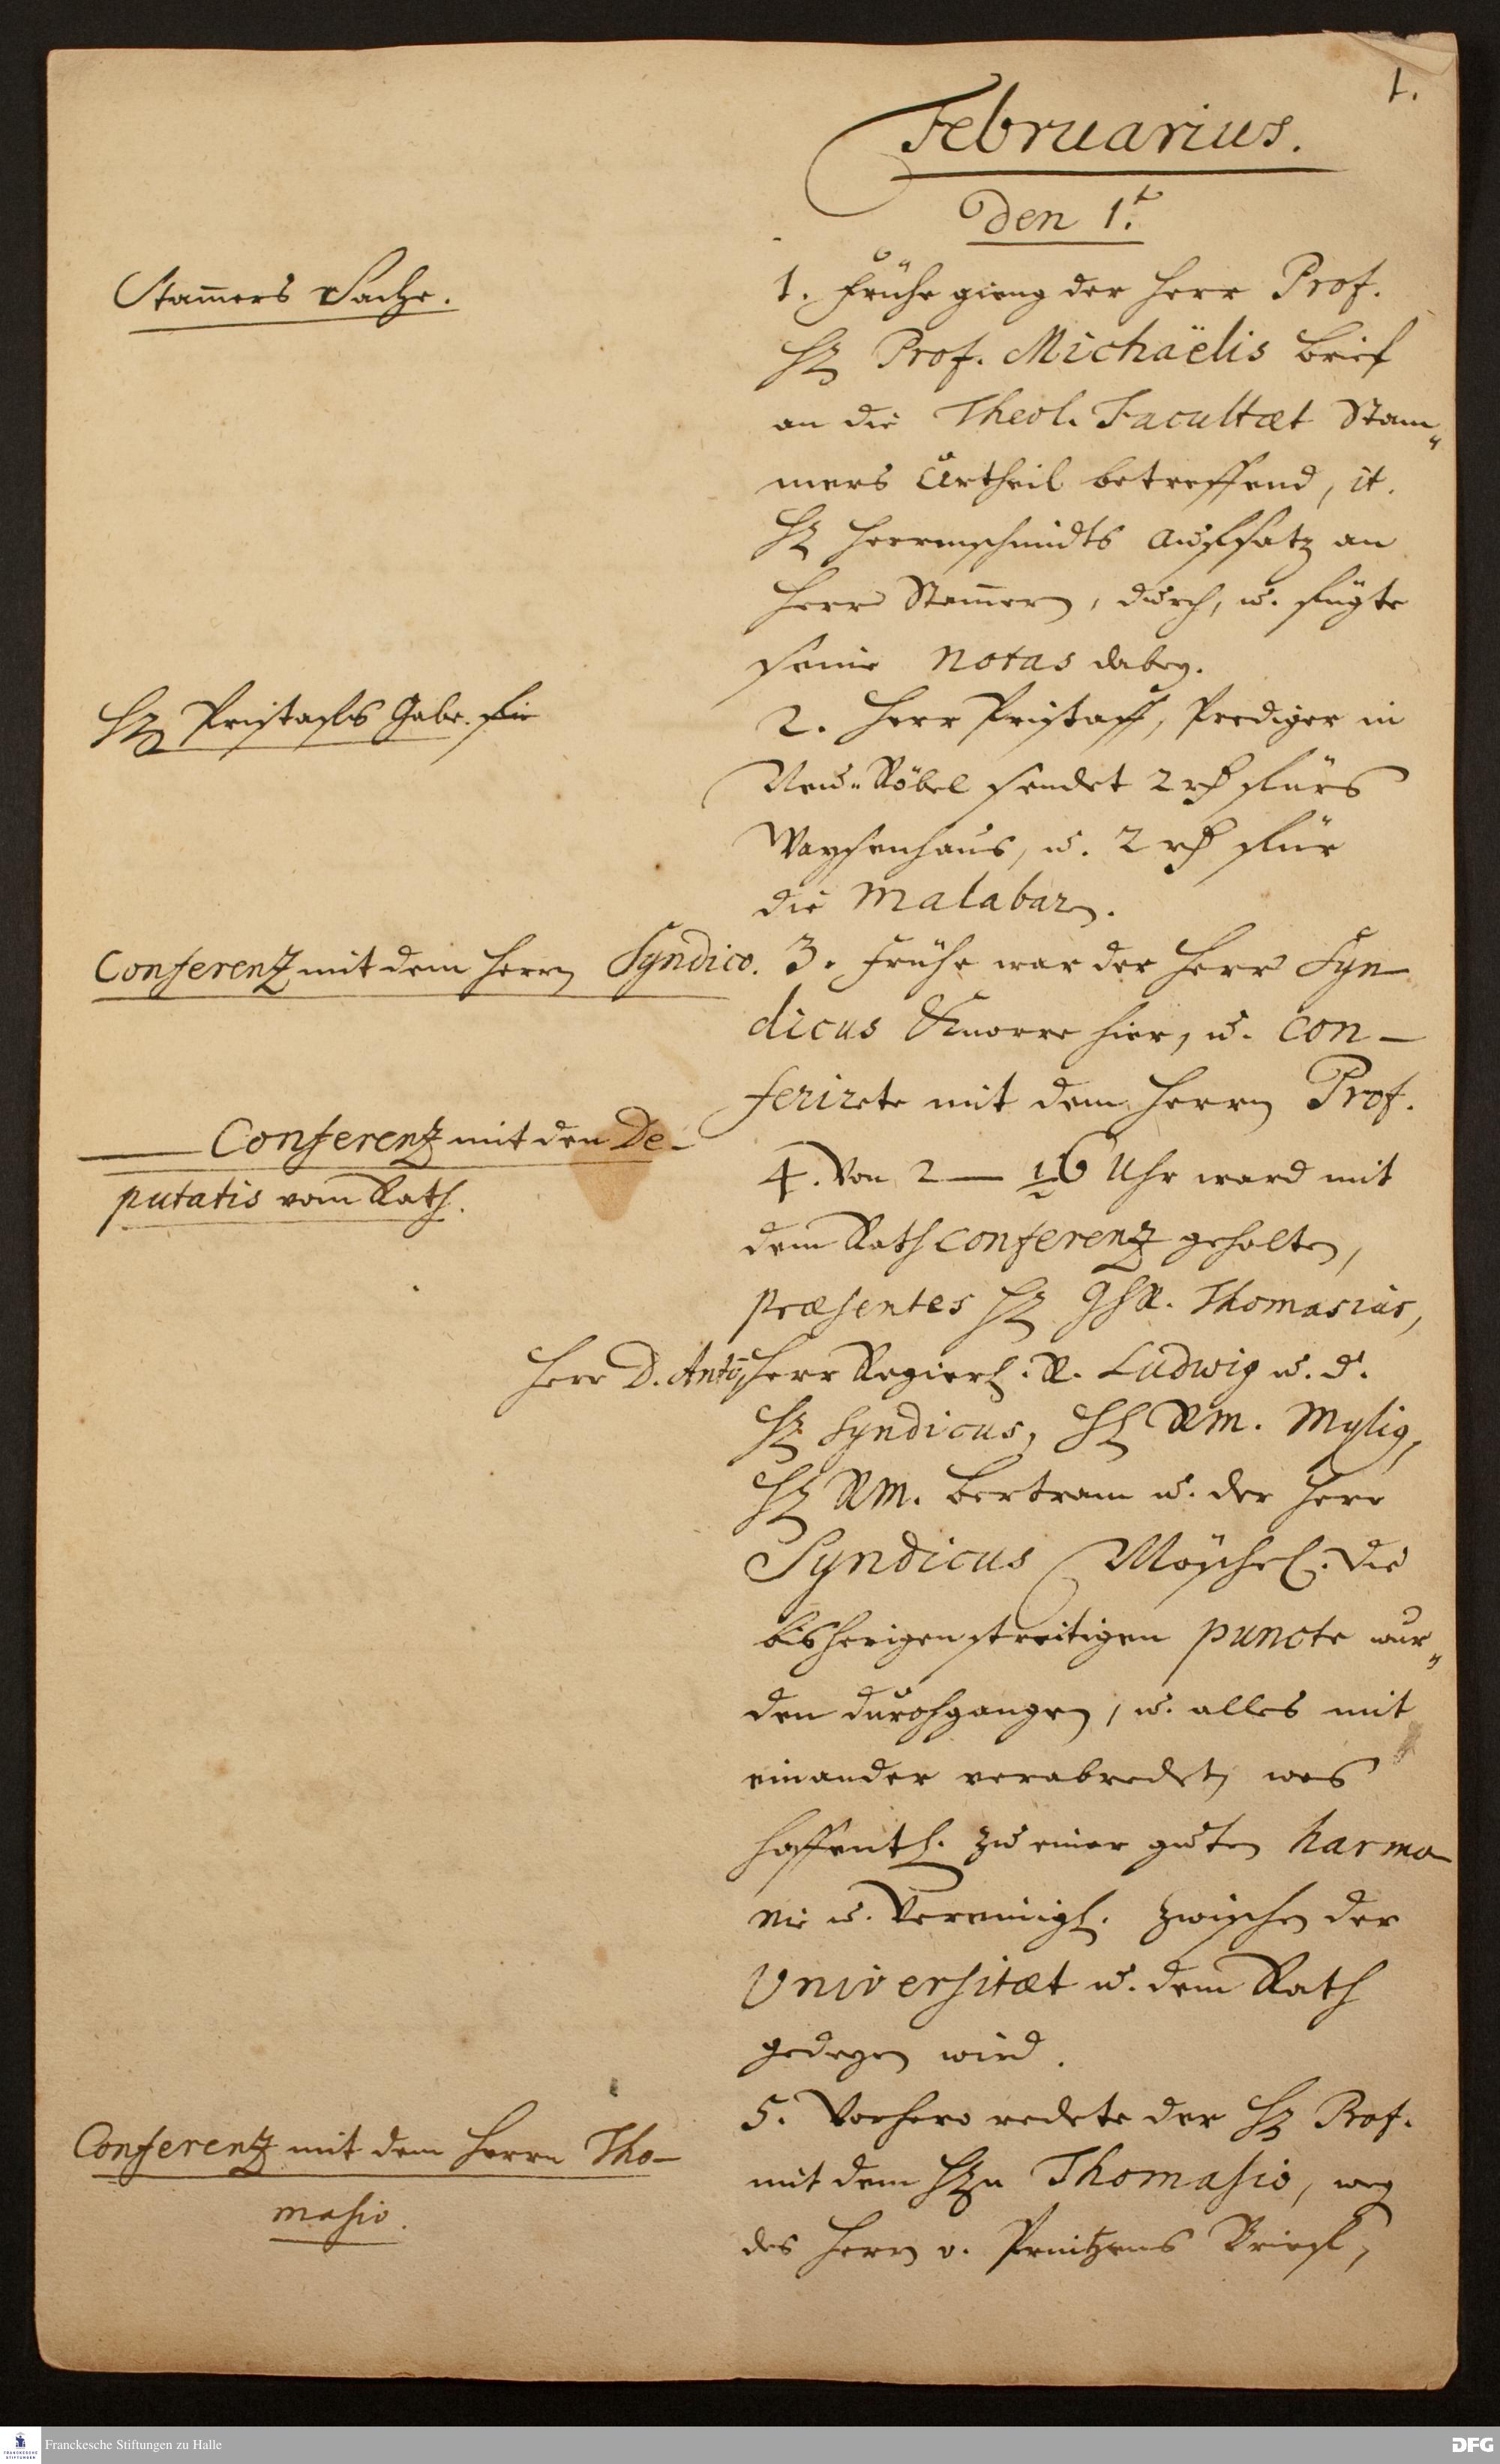 1.
Februarius.
Den 1.t
Stam̄ers Sache.
1. Frühe gieng der Herr Prof.
H. Prof. Michaëlis brief
an die Theol. Facultæt Stam„
mers Urtheil betreffend, it.
H. Herrnschmidts Auffsatz an
Herr Stam̄ern, durch, u. fügte
seine Notas dabey.
H. Pristaffs Gabe.
2. Herr Pristaff, Prediger in
Neu-Röbel sendet 2 rh fürs
Waysenhaus, u. 2 rh für
die Malabarn.
Conferentz mit dem Herrn Syndico.
3. Frühe war der Herr Syn
dicus Knorre hier, u. con-
ferirete mit dem Herrn Prof.
Conferentz mit den De-
putatis vom Rath.
4. Von 2 — 1/2 6 Uhr ward mit
dem Rath Conferentz gehalten,
præsentes H. GhR. Thomasius,
Herr D. Anton, Herr Regier. R. Ludwig u. d.
H. Syndicus, H. RM. Mylig,
H. RM. Bertram u. der Herr
Syndicus Möschel. Die
bisherigen streitigen puncte wur„
den durchgangen, u. alles mit
einander verabredet, was
hoffentl. zu einer guten harmo
nie u. Vereinig. zwischen der
Universitæt u. dem Rath
gedeyen wird.
Conferentz mit dem Herrn Tho-
masio.
5. Vorhero redete der H. Prof.
mit dem Hn Thomasio, weg
des Herrn v. Printzens Brieff,
Franckesche Stiftungen zu Halle
DFG